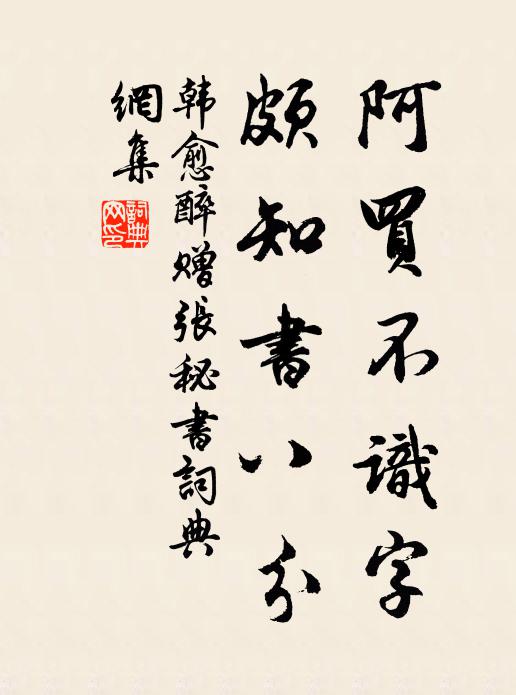 阿買不識字
頗知書八分
韓愈醉贈張秘書詞典
網集
詞典
网印